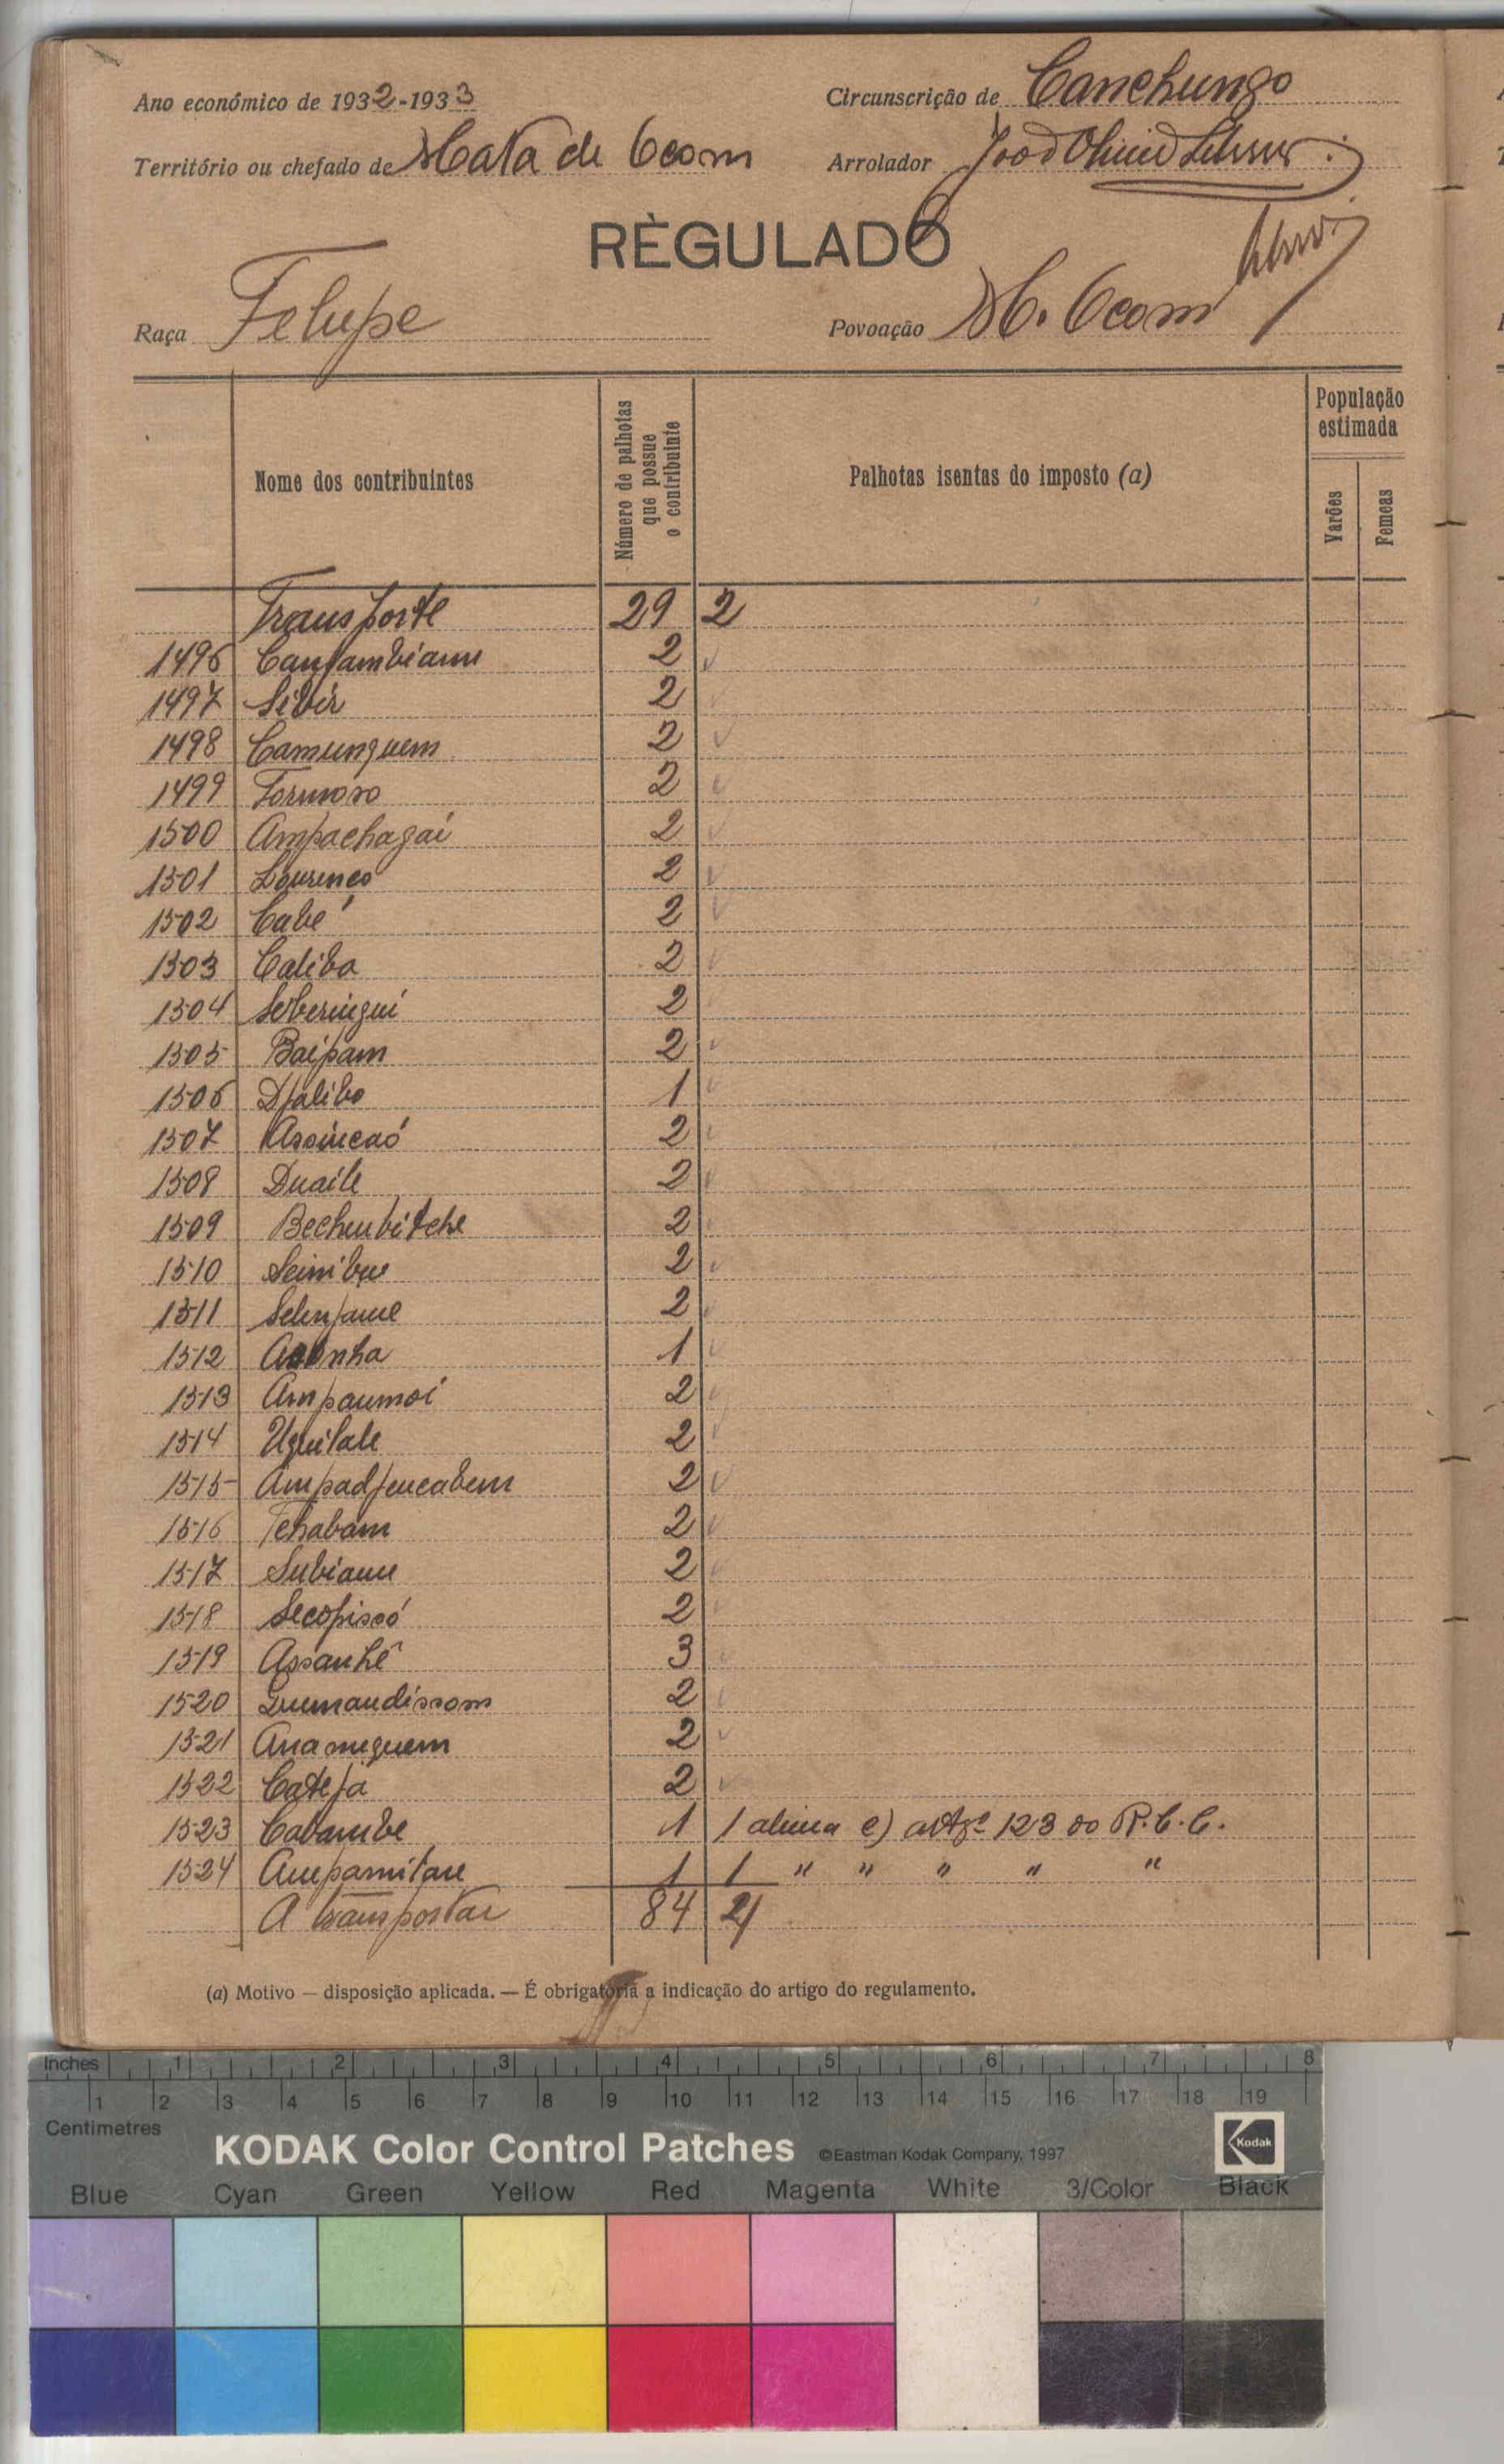 Ano económico de 1932-1933
Circunscrição de Canchungo
Território ou chefado de Mata de Ocom
Arrolador João
RÈGULADO
Raça Felupe
Povoação M. Ocom
Nome dos contribuintes
Número de palhotas que possue o contribuinte
Palhotas isentas do imposto (a)
População estimada
Varões
Femeas
Transporte 29 2
1496 2
1497 Sibir 2
1498 Camunquem 2
1499 Formoso 2
1500 Ampachagai 2
1501 Lourenço 2
1502 Cabé 2
1503 Caliba 2
1504 2
1505 Baipam 2
1506 Djalibo 1
1507 Assincaó 2
1508 Duaile 2
1509 Bechenbitche 2
1510 2
1511 2
1512 1
1513 Ampaumoi 2
1514 2
1515 2
1516 Tchabam 2
1517 2
1518 2
1519 Assanhê 3
1520 2
1521 2
1522 Cateja 2
1523 1 1 alinea e) artgº 123 do R.C.C.
1524 1 1 " " " " "
A transportar 84 21
(a) Motivo — disposição aplicada. — É obrigatória a indicação do artigo do regulamento.
Inches 1 2 3 4 5 6 7 8
1 2 3 4 5 6 7 8 9 10 11 12 13 14 15 16 17 18 19
Centimetres
KODAK Color Control Patches ©Eastman Kodak Company, 1997 Kodak
Blue Cyan Green Yellow Red Magenta White 3/Color Black